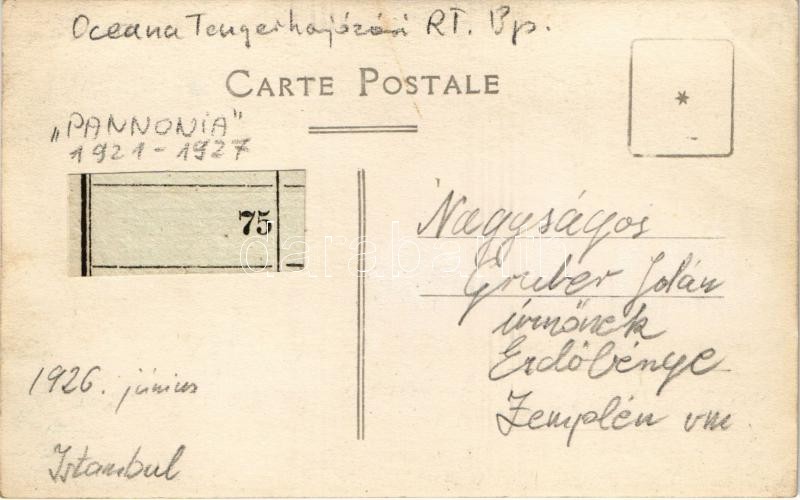 Oceana Tengerhajózási RT. Bp.
CARTE POSTALE
*
„PANNONIA"
1921-1927
75
darabanth
Nagyságos
Gruber Jolán
úrnőnek
Erdőbénye
Zemplén vm.
1926. június
Istanbul